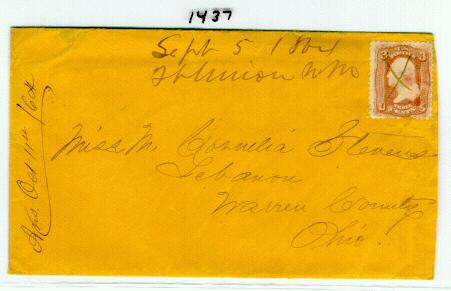 1437
Sept 5 1864
Ft Union NM
Miss M. Cornelia Stevens
Lebanon
Warren County
Ohio.
Ans Oct 11th /64
3 3
THREE CENTS